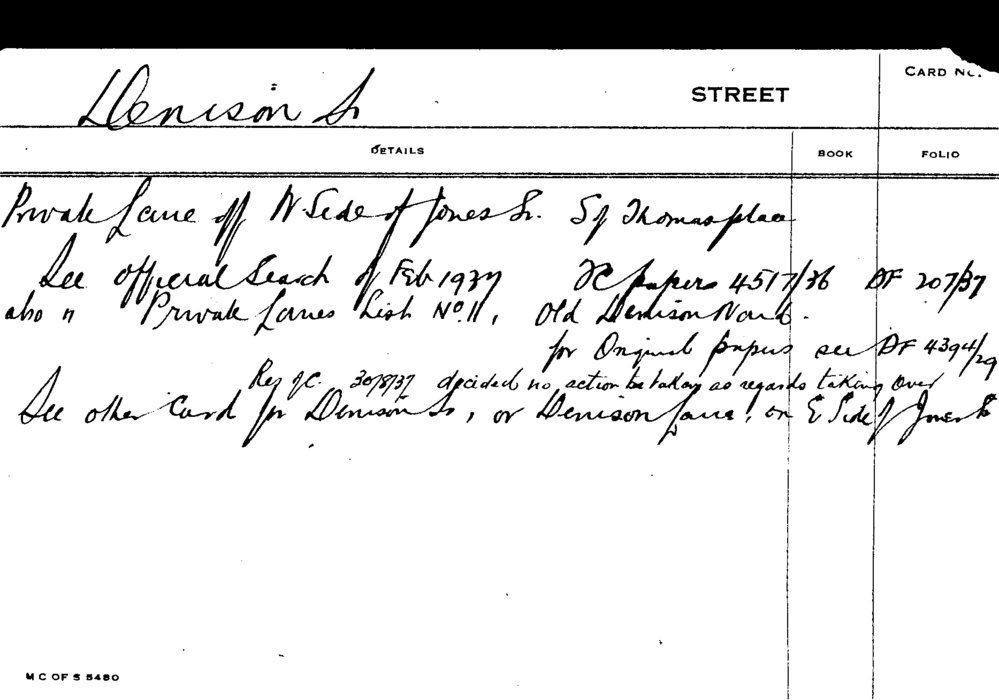 CARD NO.
Denison St STREET
DETAILS BOOK FOLIO
Private Lane off W Side of Jones St. S of Thomas place
See official Search of Feb 1937 TC papers 4517/36 DF 207/37
also " Private Lanes List No. 11, Old Denison Ward.
for Original papers see DF 4394/29
Res of C. 30/8/37 decided no action be taken as regards taking over
See other Card for Denison St, or Denison Lane, on E Side of Jones St
M C OF S 5480